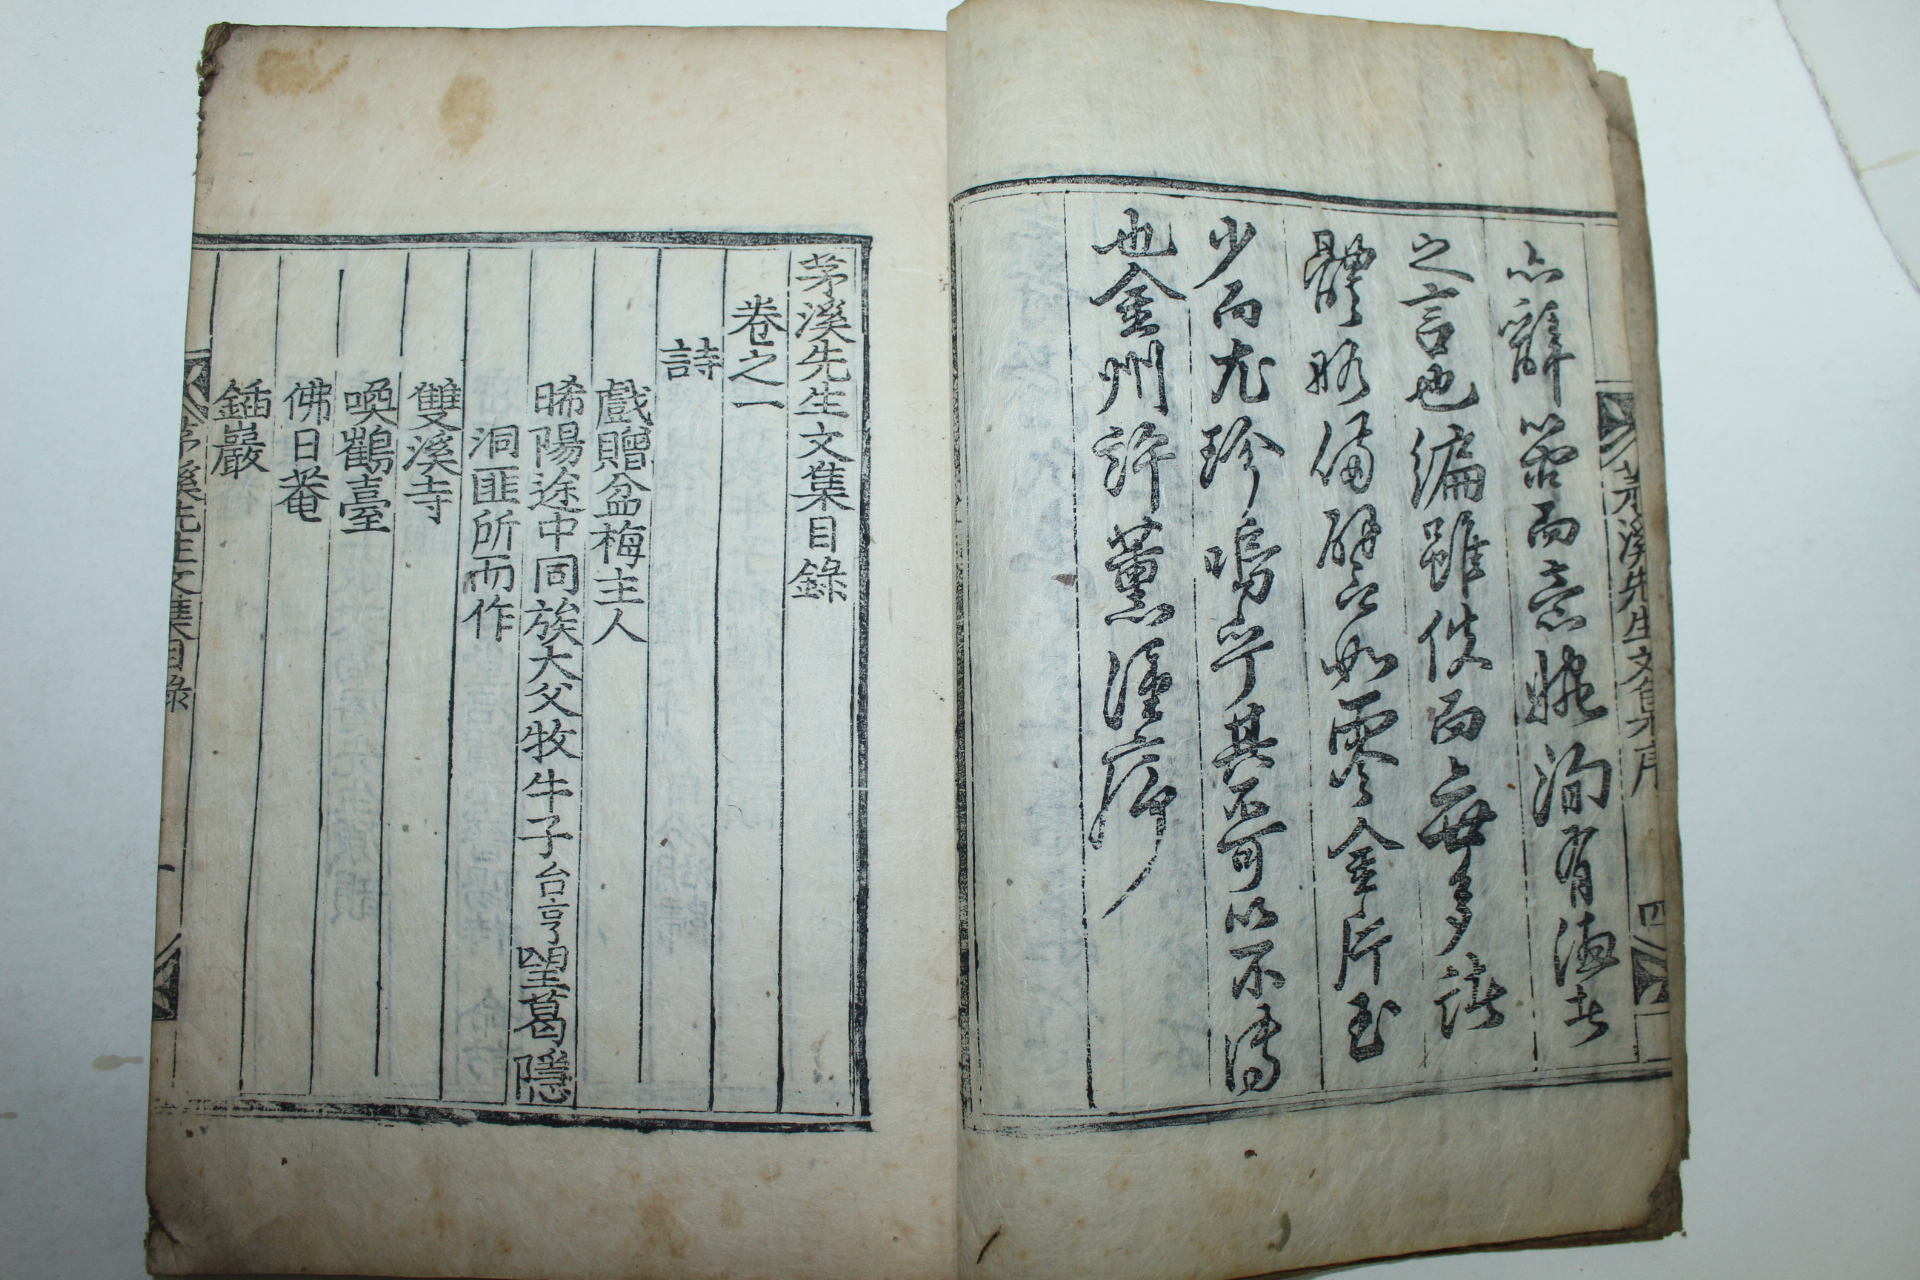 亦辭約而意婉洵有德者
之言也編雖佚而無多諸
體略備殆所如零金片玉
少而尤珍嗚乎其不可以不傳
也金州許薰謹序
茅溪先生文集序
四
茅溪先生文集目錄
卷之一
詩
戲贈盆梅主人
晞陽途中同族大父牧牛子台亨望葛隱
洞匪所而作
雙溪寺
喚鶴臺
佛日菴
鍤巖
茅溪先生文集目錄
一